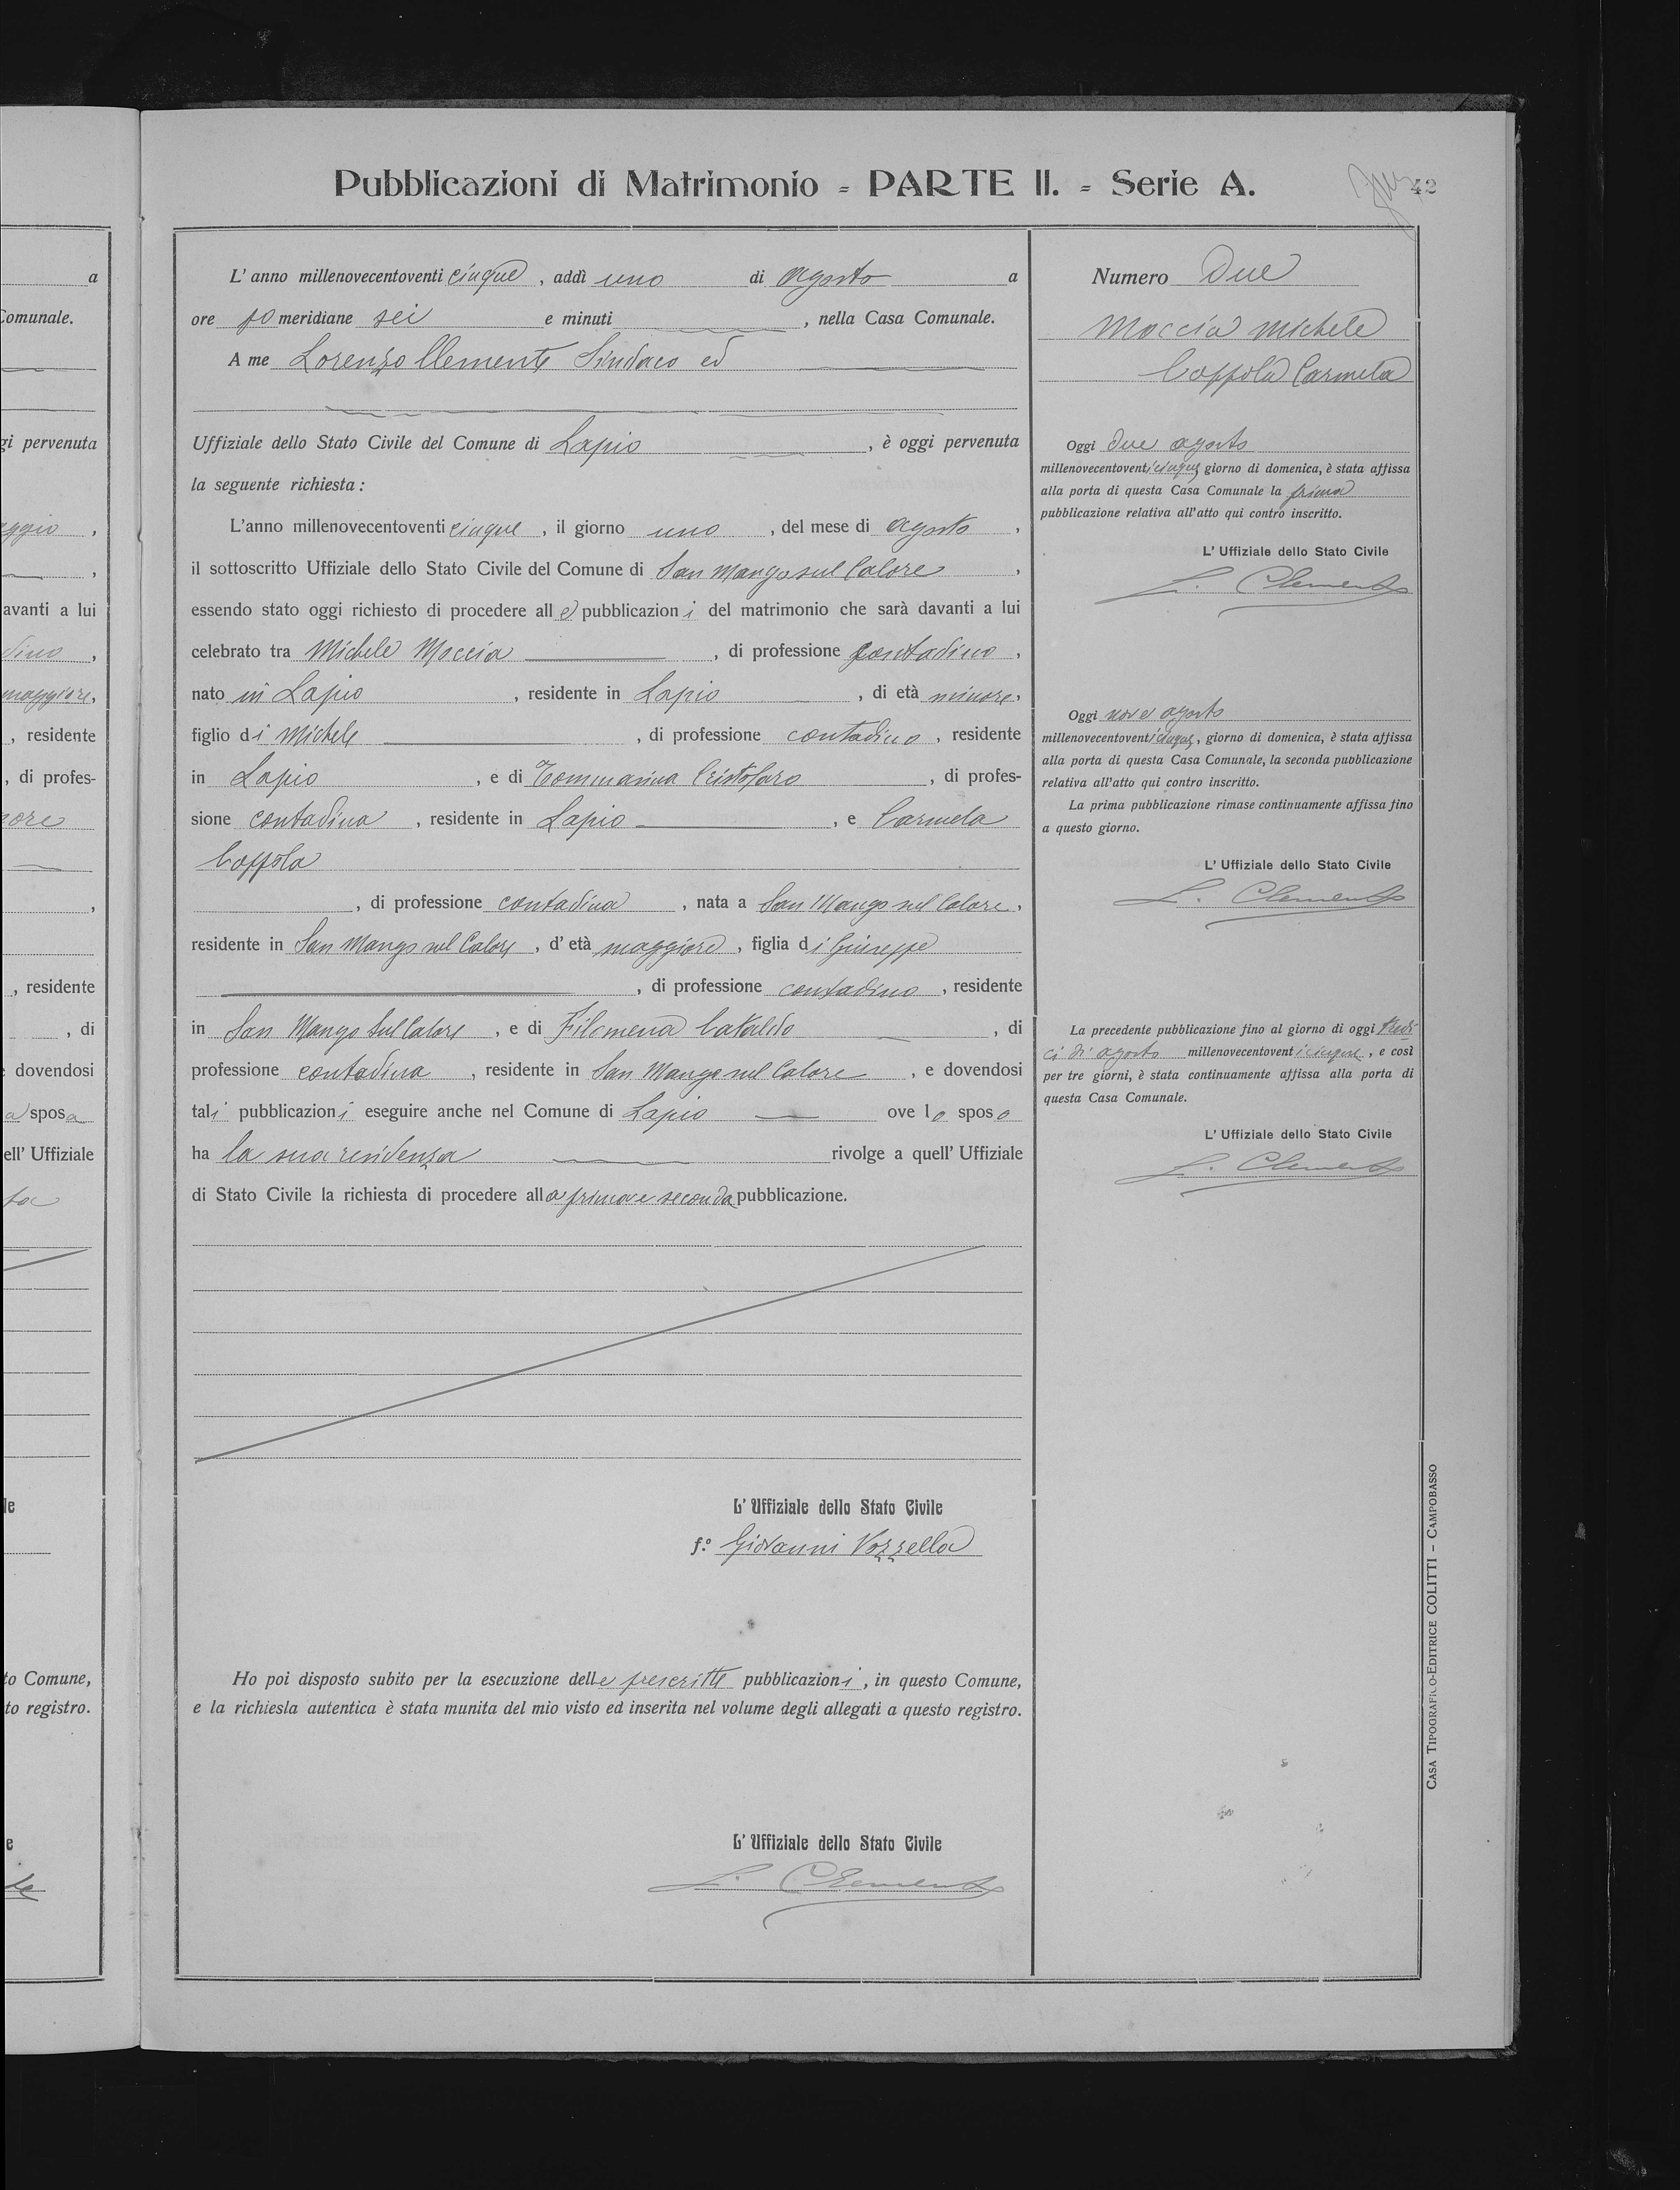 Pubblicazioni di Matrimonio = PARTE II. = Serie A.
42
L' anno millenovecentoventi cinque, addì uno di Agosto a
ore pomeridiane sei e minuti , nella Casa Comunale.
A me Lorenzo Clemente Sindaco ed
Uffiziale dello Stato Civile del Comune di Lapio , è oggi pervenuta
la seguente richiesta :
L'anno millenovecentoventi cinque , il giorno uno , del mese di Agosto ,
il sottoscritto Uffiziale dello Stato Civile del Comune di San Mango sul Calore ,
essendo stato oggi richiesto di procedere alle pubblicazioni del matrimonio che sarà davanti a lui
celebrato tra Michele Moccia , di professione contadino ,
nato in Lapio , residente in Lapio , di età minore,
figlio di Michele , di professione contadino , residente
in Lapio , e di Tommasina Cristofaro , di profes-
sione contadina , residente in Lapio , e Carmela
Coppola
, di professione contadina , nata a San Mango sul Calore ,
residente in San Mango sul Calore , d' età maggiore , figlia di Giuseppe
, di professione contadino , residente
in San Mango sul Calore , e di Filomena Cataldo , di
professione contadina , residente in San Mango sul Calore , e dovendosi
tali pubblicazioni eseguire anche nel Comune di Lapio ove lo sposo
ha la sua residenza rivolge a quell' Uffiziale
di Stato Civile la richiesta di procedere alla prima e seconda pubblicazione.
L' Uffiziale dello Stato Civile
f.º Giovanni Vozzella
Ho poi disposto subito per la esecuzione delle prescritte pubblicazioni , in questo Comune,
e la richiesla autentica è stata munita del mio visto ed inserita nel volume degli allegati a questo registro.
L' Uffiziale dello Stato Civile
L. Clemente
Numero Due
Moccia Michele
Coppola Carmela
Oggi due agosto
millenovecentoventicinque, giorno di domenica, è stata affissa
alla porta di questa Casa Comunale la prima
pubblicazione relativa all'atto qui contro inscritto.
L' Uffiziale dello Stato Civile
L. Clemente
Oggi nove agosto
millenovecentoventicinque, giorno di domenica, è stata affissa
alla porta di questa Casa Comunale, la seconda pubblicazione
relativa all'atto qui contro inscritto.
La prima pubblicazione rimase continuamente affissa fino
a questo giorno.
L' Uffiziale dello Stato Civile
L. Clemente
La precedente pubblicazione fino al giorno di oggi tredi-
ci di agosto millenovecentoventicinque , e così
per tre giorni, è stata continuamente affissa alla porta di
questa Casa Comunale.
L' Uffiziale dello Stato Civile
L. Clemente
CASA TIPOGRAFICO-EDITRICE COLITTI – CAMPOBASSO
a
Comunale.
gi pervenuta
aggio ,
avanti a lui
dino ,
maggiore,
, residente
, di profes-
ore
, residente
, di
dovendosi
a sposa
ell' Uffiziale
ta
le
to Comune,
to registro.
e
te